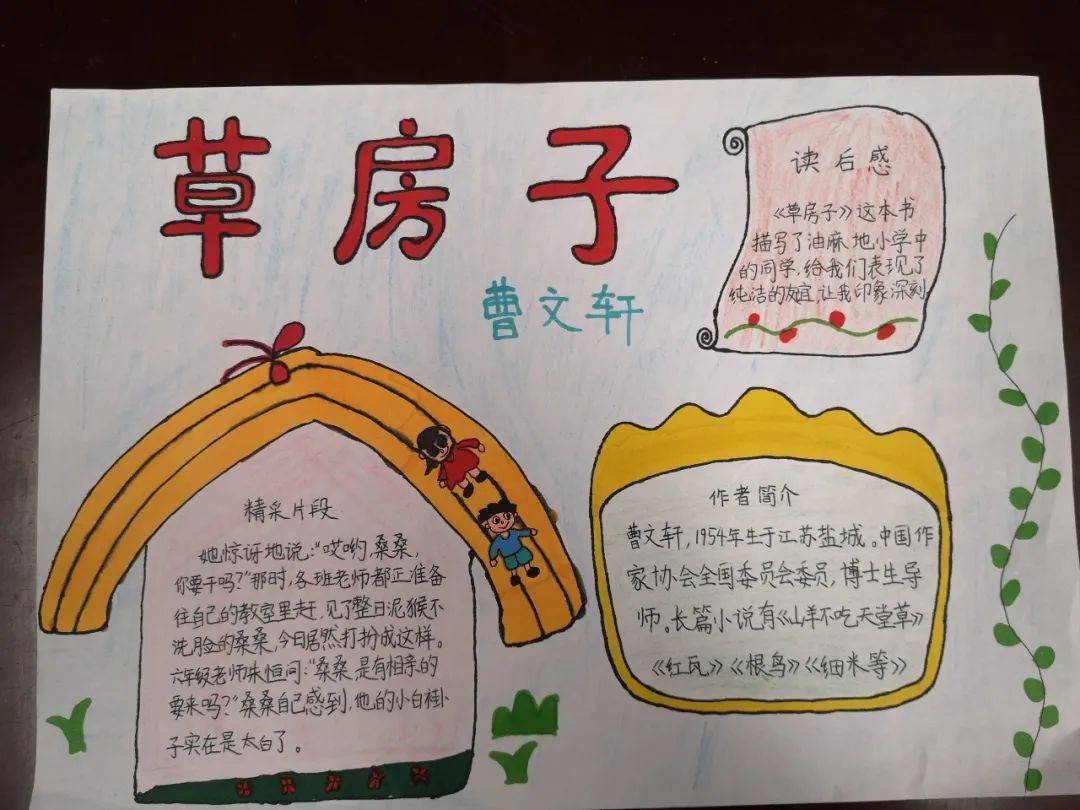 草房子
曹文轩
读后感
《草房子》这本书
描写了油麻地小学中
的同学,给我们表现了
纯洁的友谊,让我印象深刻
精采片段
她惊讶地说:“哎哟,桑桑,
你要干吗?”那时,各班老师都正准备
往自己的教室里走,见了整日泥猴不
洗脸的桑桑,今日居然打扮成这样。
六年级老师朱恒问:“桑桑,是有相亲的
要来吗?”桑桑自己感到,他的小白褂
子实在是太白了。
作者简介
曹文轩,1954年生于江苏盐城。中国作
家协会全国委员会委员,博士生导
师。长篇小说有《山羊不吃天堂草》
《红瓦》《根鸟》《细米等》